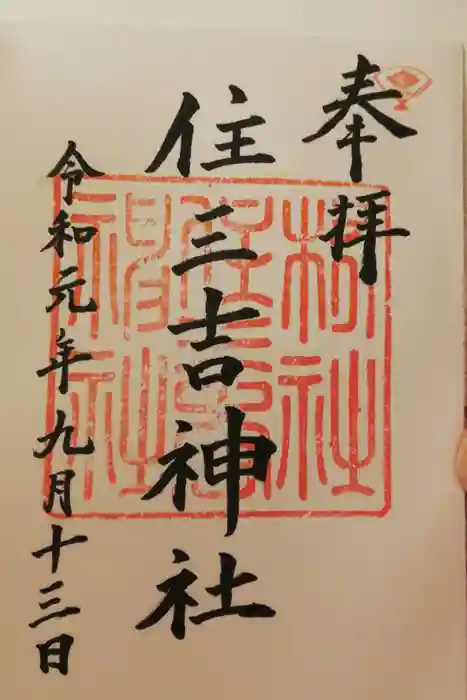 奉拝
住三吉神社
令和元年九月十三日
村社